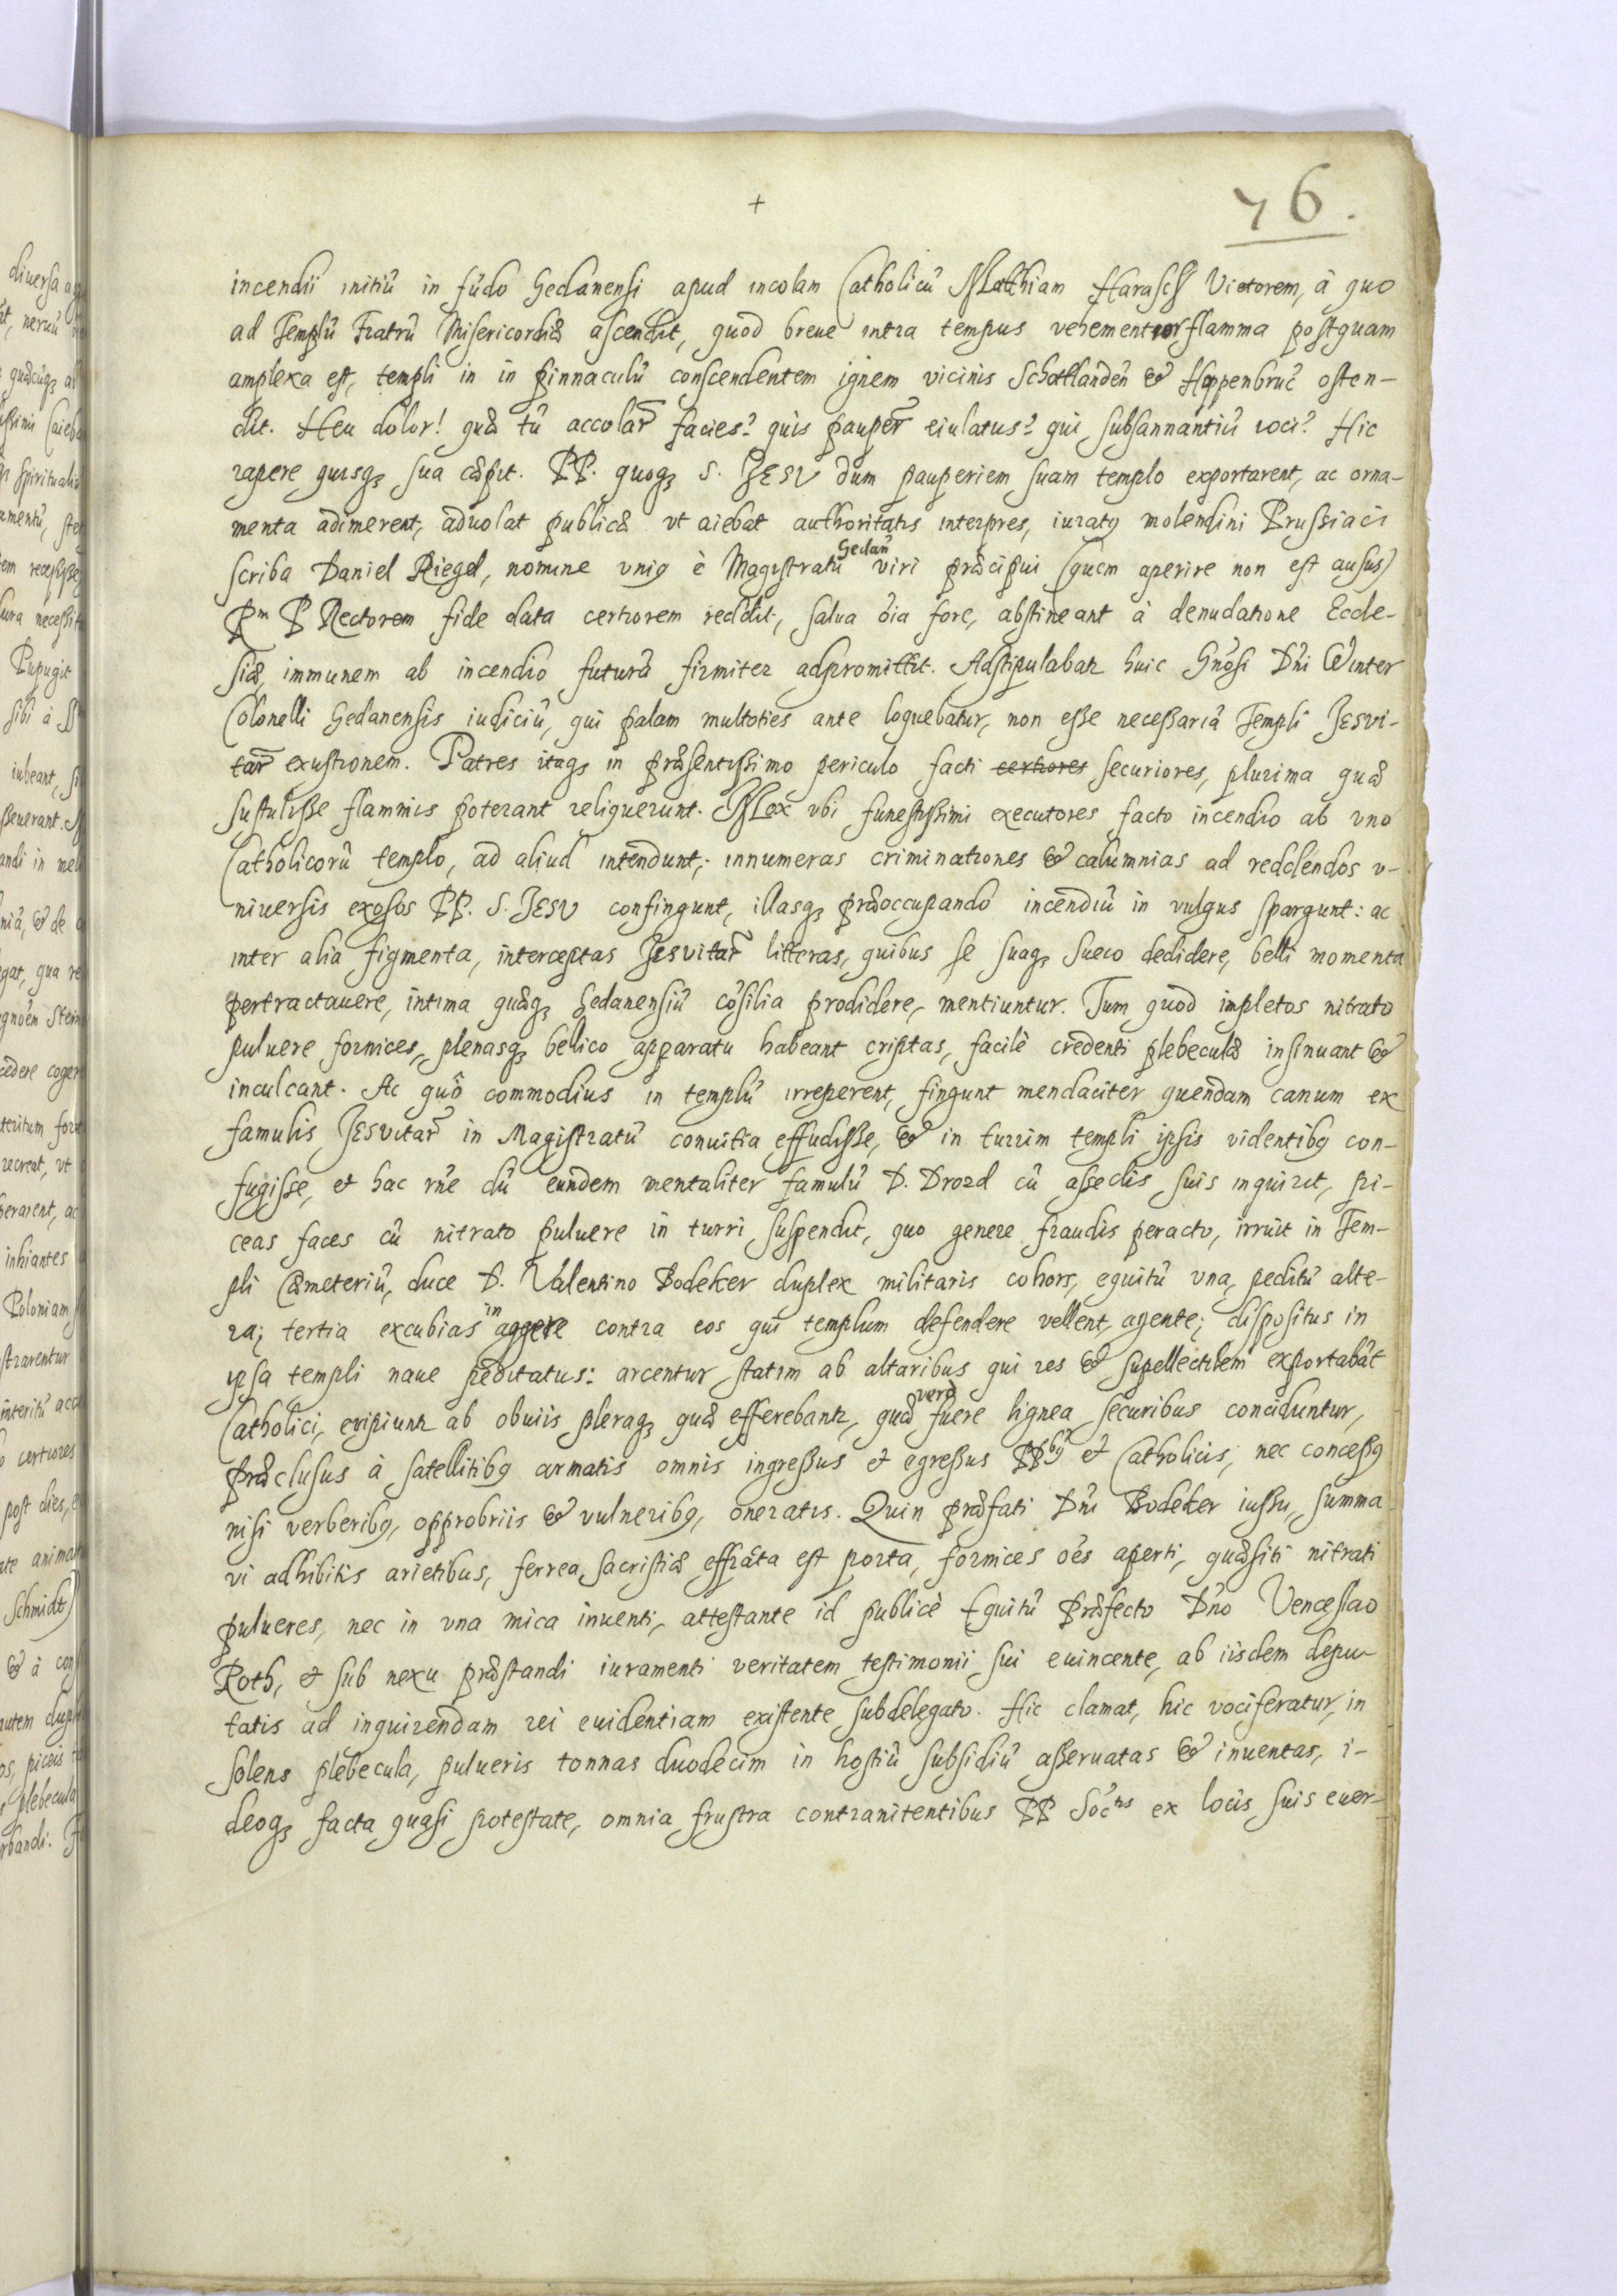 +
76.
incendii initiũ in fũdo Gedanensi apud incolam Catholicũ Matthiam Harasch Vietorem, à quo
ad Templũ Fratrũ Misericordiæ ascendit, quod breue intra tempus vehementior flamma postquam
amplexa est, templi in in pinnaculũ conscendentem ignem vicinis Schotlanden & Hoppenbruc osten-
dit. Heu dolor! quæ tũ accolar̃ facies? quis pauper̃ eiulatus? qui subsannantiũ ioci? Hic
rapere quisq; sua cæpit. PP. quoq; S. JESU dum pauperiem suam templo exportarent, ac orna-
menta adimerent, aduolat publicæ vt aiebat authoritatis interpres, iuratꝰ molendini Prussiaci
scriba Daniel Riegel, nomine vniꝰ è Magistratu Gedañ viri præcipui (quem aperire non est ausus)
Pm P Rectorem fide data certiorem reddit, salua õia fore, abstineant à denudatione Eccle-
siæ, immunem ab incendio futurã firmiter adpromittit. Adstipulabatr huic Gnõsi Dñi Winter
Colonelli Gedanensis iudiciũ, qui palam multoties ante loquebatur, non esse necessariã Templi JESVI-
tar̃ exustionem. Patres itaq; in præsentissimo periculo facti certiores securiores, plurima quæ
sustulisse flammis poterant reliquerunt. Mox vbi funestissimi executores facto incendio ab vno
Catholicorũ templo, ad aliud intendunt; innumeras criminationes & calumnias ad reddendos v-
niuersis exosos PP. S. JESU confingunt, illasq; præoccupando incendiũ in vulgus spargunt: ac
inter alia figmenta, interceptas JESVitar̃ litteras, quibus se suaq; Sueco dedidere, belli momenta
pertractauere, intima quæq; Gedanensiũ cõsilia prodidere, mentiuntur. Tum quod impletos nitrato
puluere fornices, plenasq; bellico apparatu habeant criptas, facilè credenti plebeculæ insinuant &
inculcant. Ac quõ commodius in templũ irreperent, fingunt mendaciter quendam canum ex
famulis JESVitar̃ in Magistratũ conuitia effudisse, & in turrim templi ipsis videntibꝰ con-
fugisse, et hac rñe dũ eundem mentaliter famulũ D. Drozd cũ assedis suis inquirit, pi-
ceas faces cũ nitrato puluere in turri suspendit, quo genere fraudis peracto, irruit in Tem-
pli Cæmeteriũ, duce D. Valentino Bodeker duplex militaris cohors, equitũ vna, peditũ alte-
ra; tertia excubias in aggere contra eos qui templum defendere vellent, agente; dispositus in
ipsa templi naue peditatus: arcentur statim ab altaribus qui res & supellectilem exportabãt
Catholici, eripiuntr ab obuiis pleraq; quæ efferebantr, quæ verò fuere lignea securibus conciduntur,
præclusus à satellitibꝰ armatis omnis ingressus et egressus PPbꝰ et Catholicis, nec concessꝰ
nisi verberibꝰ, opprobriis & vulneribꝰ, oneratis. Quin præfati Dñi Bodeker iussu, summa
vi adhibitis arietibus, ferrea sacristiæ effrãta est porta, fornices oẽs aperti, quæsiti nitrati
pulueres, nec in vna mica inuenti, attestante id publicè Equitũ Præfecto Dño Venceslao
Roth, et sub nexu præstandi iuramenti veritatem testimonii sui euincente, ab iisdem depu-
tatis ad inquirendam rei euidentiam existente subdelegato. Hic clamat, hic vociferatur, in
solens plebecula, pulueris tonnas duodecim in hostiũ subsidiũ asseruatas & inuentas, i-
deoq; facta quasi potestate, omnia frustra contranitentibus PP Soctis ex locis suis euer-